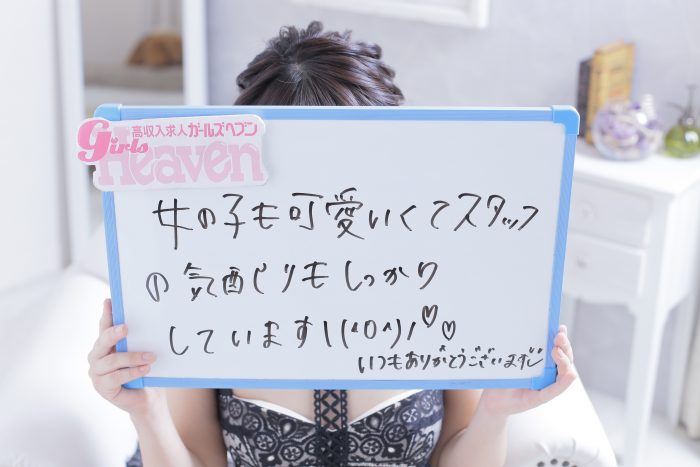 高収入求人ガールズヘブン
girls
Heaven
女の子も可愛いくてスタッフ
の気配りもしっかり
しています\(^o^)/♡♡
いつもありがとうございます